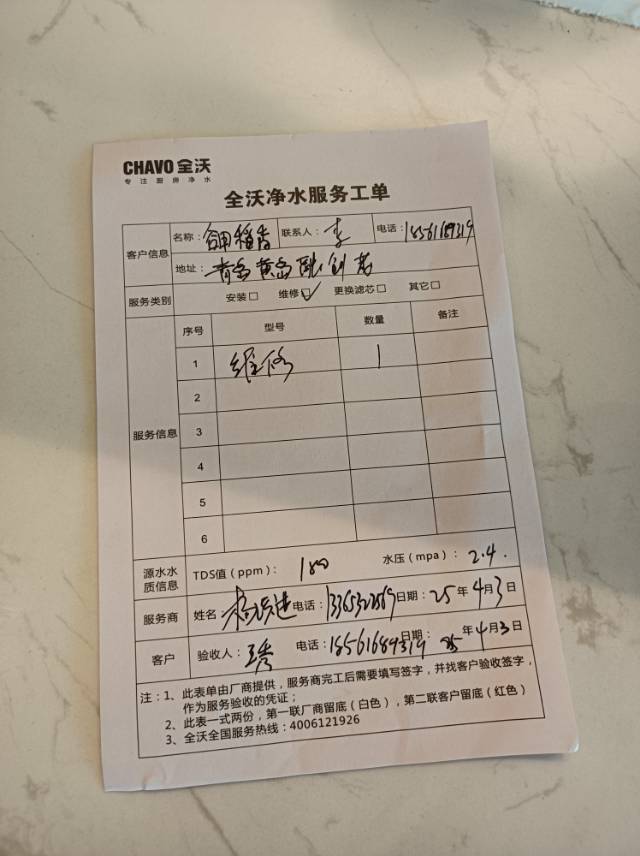 CHAVO 全沃
专注厨房净水
全沃净水服务工单
客户信息 名称： 稻香 联系人： 李 电话：18561689319
地址： 青岛黄岛
服务类别 安装□ 维修☑ 更换滤芯□ 其它□
服务信息 序号 型号 数量 备注
1 维修 1
2
3
4
5
6
源水水质信息 TDS值（ppm）： 180 水压（mpa）： 2.4.
服务商 姓名 杨 电话： 日期：25年4月3日
客户 验收人： 电话：18561689319 日期： 25年4月3日
注：1、此表单由厂商提供，服务商完工后需要填写签字，并找客户验收签字，
作为服务验收的凭证；
2、此表一式两份，第一联厂商留底（白色），第二联客户留底（红色）
3、全沃全国服务热线：4006121926